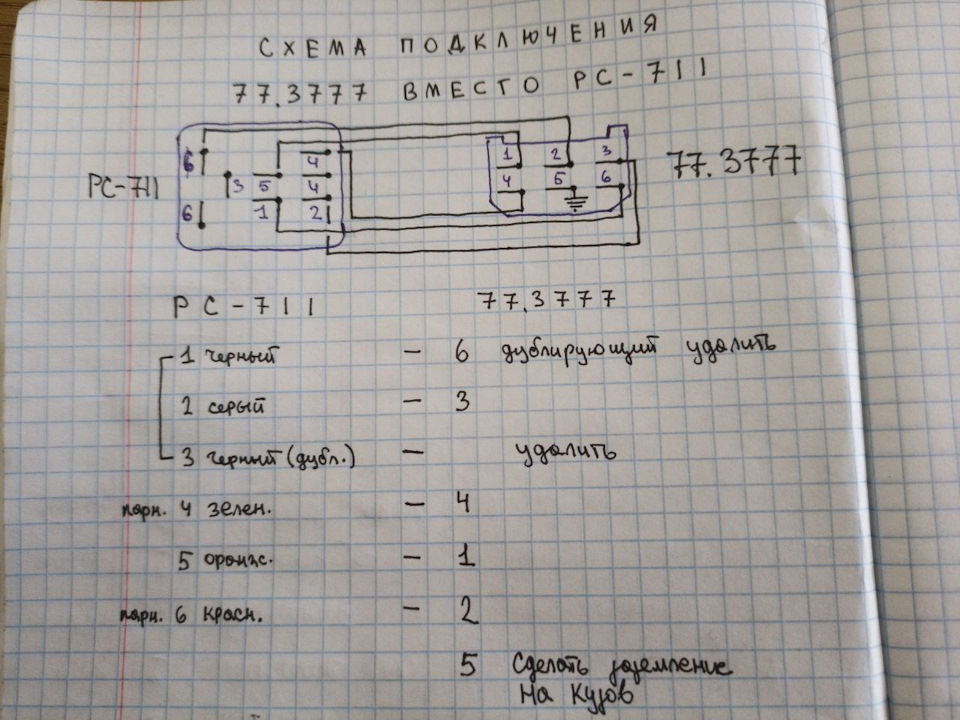 СХЕМА ПОДКЛЮЧЕНИЯ
77.3777 ВМЕСТО РС-711
РС-711
6
6
3
5
1
4
4
2
1
2
3
4
5
6
77.3777
РС-711 77.3777
1 черный – 6 дублирующий удалить
2 серый – 3
3 черный (дубл.) – удалить
парн. 4 зелен. – 4
5 оранж. – 1
парн. 6 красн. – 2
5 Сделать заземление
на кузов